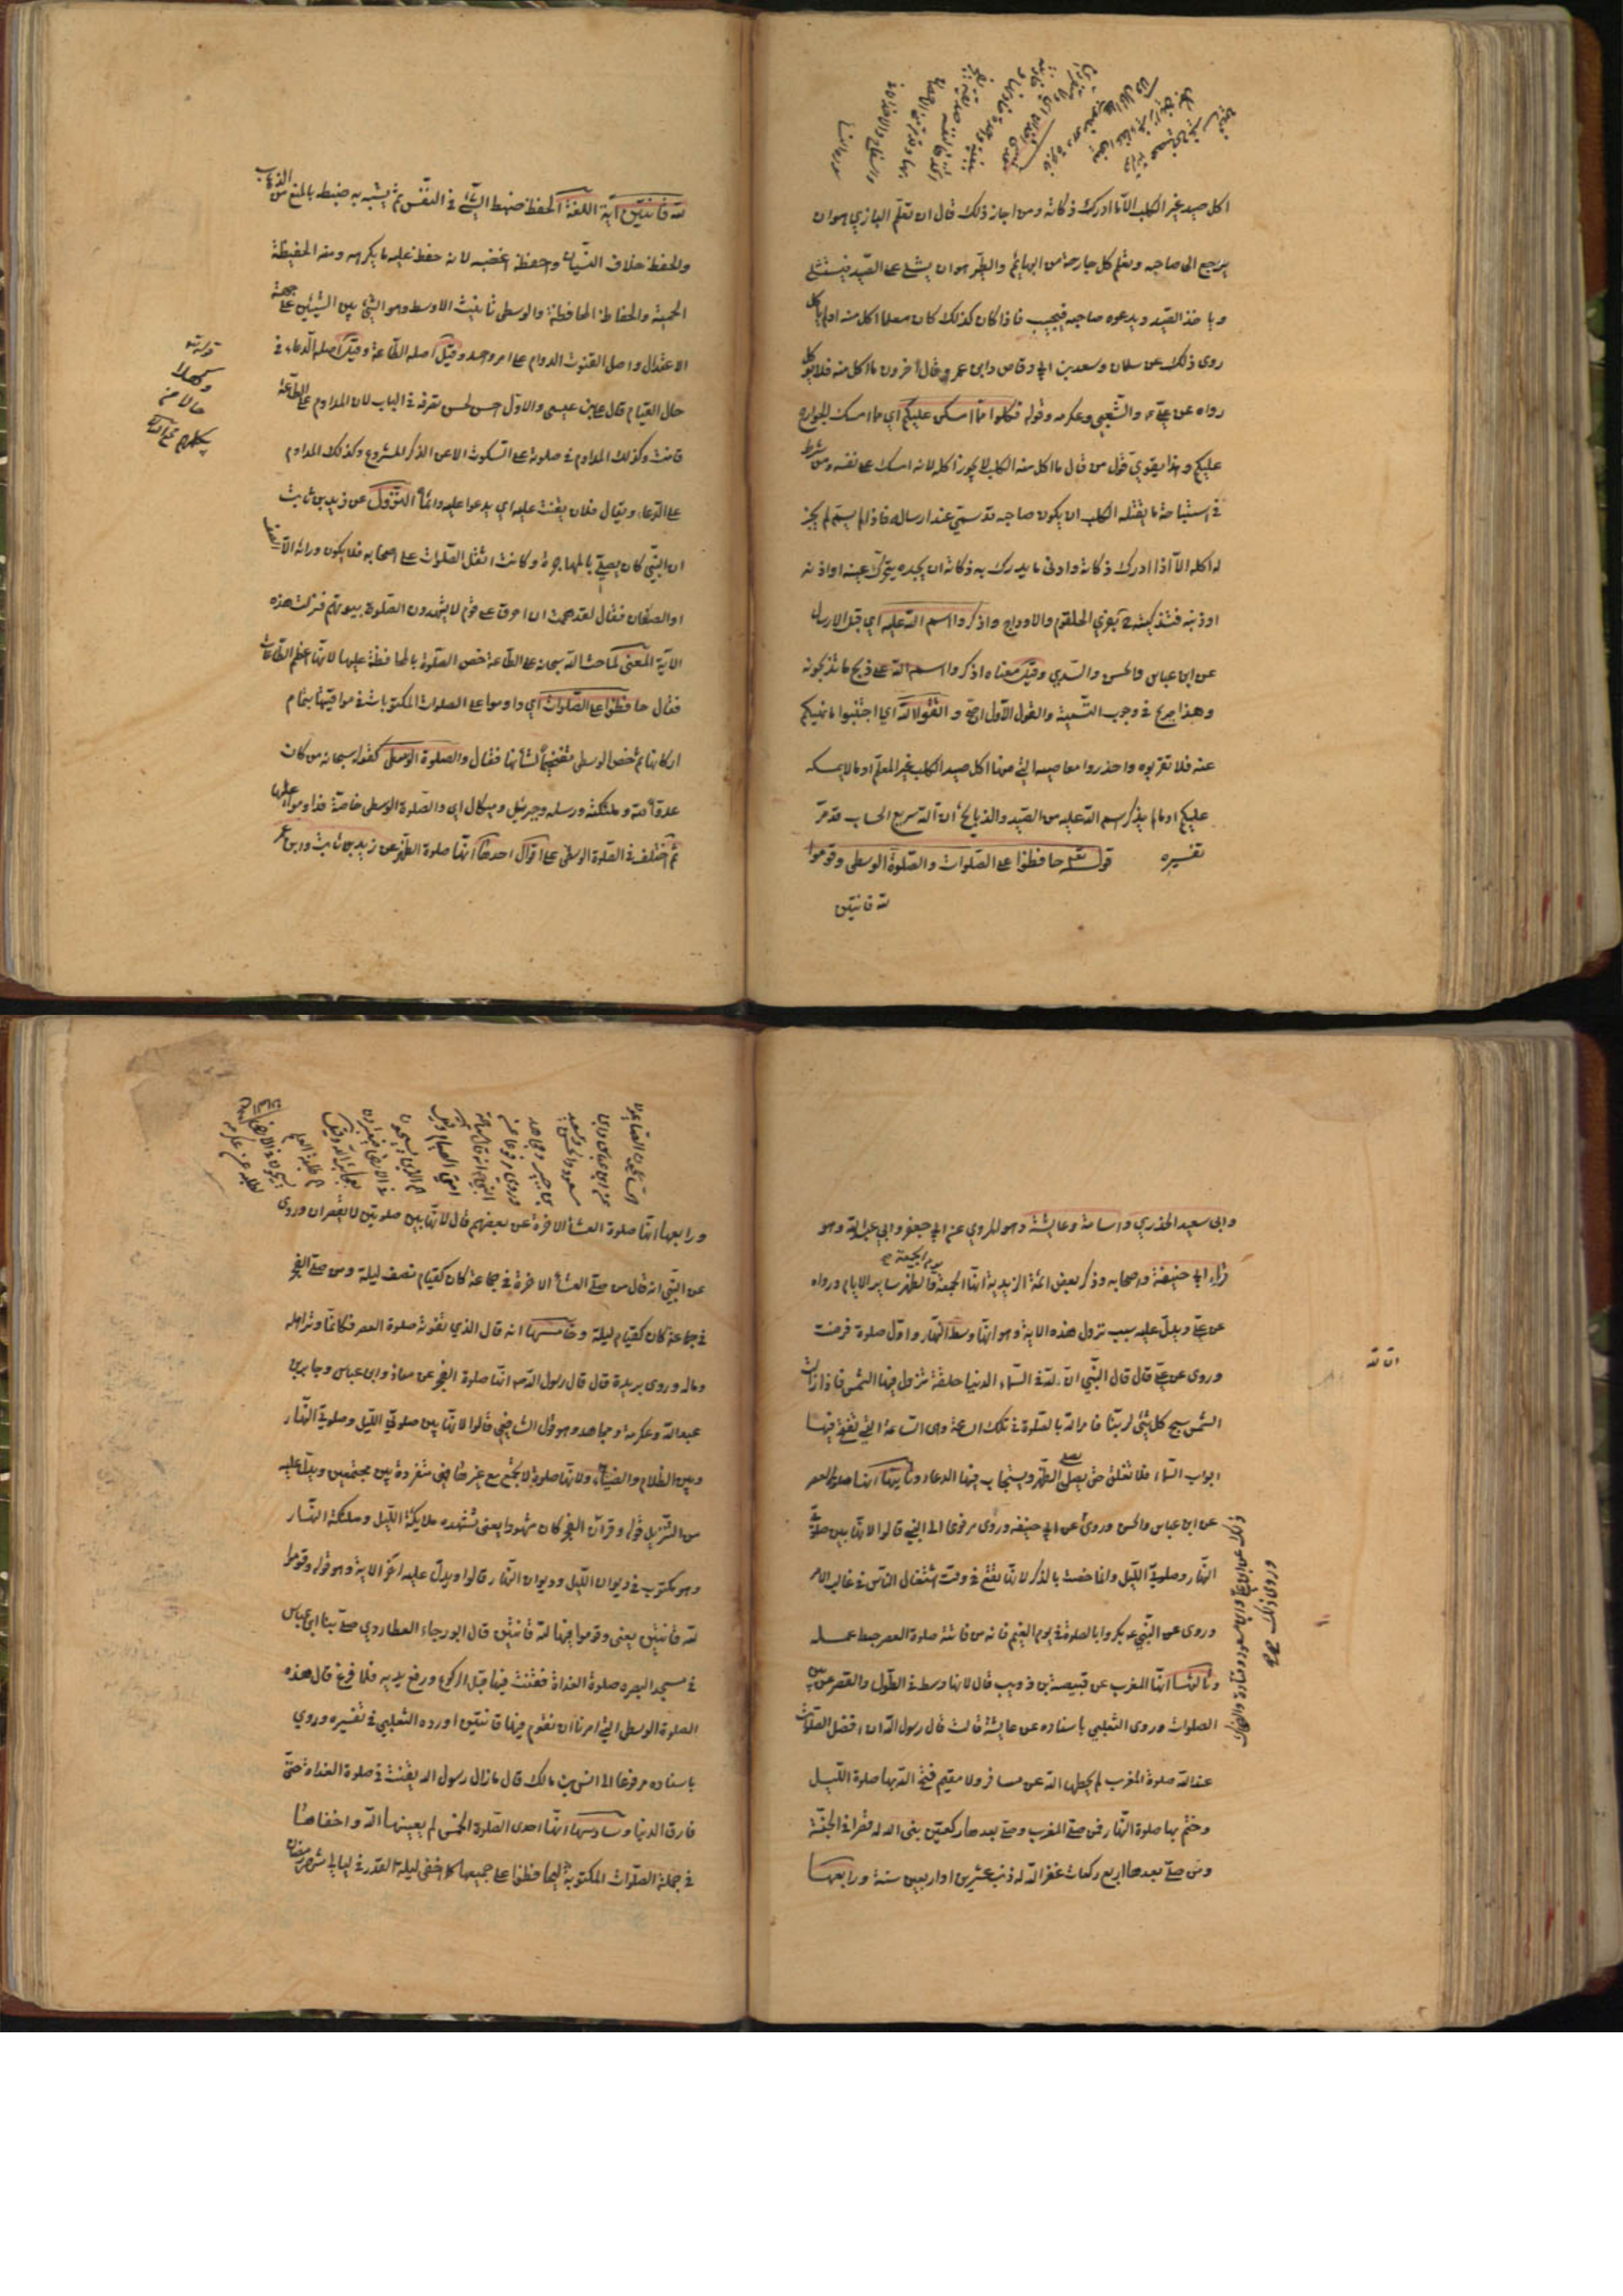 اكل صيد غير الكلب الا ما ادرك ذكاته ومن اجاز ذلك قال ان تعلم البازي هو ان
يرجع الى صاحبه وتعلم كل جارحة من البهائم والطير هو ان يشلى على الصيد فيستشلى
وياخذ الصيد ويدعوه صاحبه فيجيب فاذا كان كذلك كان معلما اكل منه او لم ياكل
روى ذلك عن سلمان وسعد بن ابي وقاص وابن عمر وقال آخرون ما اكل منه فلا يؤكل
رواه عن علي ع والشعبي وعكرمه وقوله فكلوا مما امسكن عليكم اي مما امسك الجوارح
عليكم وهذا يقوي قول من قال ما اكل منه الكلب لا يجوز اكله لانه امسك على نفسه ومن شرط
في استباحة ما يقتله الكلب ان يكون صاحبه قد سمى عند ارساله فاذا لم يسم لم يجز
له اكله الا اذا ادرك ذكاته وادنى ما يدرك به ذكاته ان يجده يتحرك عينه او اذنه
او ذنبه فتذكيته ح بفري الحلقوم والاوداج واذكروا اسم الله عليه اي قبل الارسال
عن ابن عباس والحسن والسدي وقيل معناه اذكروا اسم الله على ذبح ما تذبحونه
وهذا صريح في وجوب التسمية والقول الاول اصح واتقوا الله اي اجتنبوا ما نهيكم
عنه فلا تقربوه واحذروا معاصيه التي منها اكل صيد الكلب غير المعلم او ما لا يمسكه
عليكم او ما لم يذكر اسم الله عليه من الصيد والذبائح ان الله سريع الحساب قد مر
تفسيره قوله تعالى حافظوا على الصلوات والصلوة الوسطى وقوموا
لله قانتين
لله قانتين آية اللغة الحفظ ضبط الشيء في النفس ثم يشبه به ضبطه بالمنع من الذهاب
والحفظ خلاف النسيان واحفظه اغضبه لانه حفظ عليه ما يكرهه ومنه الحفيظة
الحمية والحفاظ المحافظة والوسطى تأنيث الاوسط وهو الشيء بين الشيئين على جهة
الاعتدال واصل القنوت الدوام على امر واحد وقيل اصله الطاعة وقيل اصله الدعاء في
حال القيام قال علي بن عيسى والاول احسن لحسن تصرفه في الباب لان المداوم على الطاعة
قانت وكذلك المداوم في صلوته على السكوت الا عن الذكر المشروع وكذلك المداوم
على الدعاء ويقال فلان يقنت عليه اي يدعوا عليه دائما النزول عن زيد بن ثابت
ان النبي كان يصلي بالهاجرة وكانت اثقل الصلوات على اصحابه فلا يكون ورائه الا الصف
او الصفان فقال لقد هممت ان احرق على قوم لا يشهدون الصلوة بيوتهم فنزلت هذه
الآية المعنى لما حث الله سبحانه على الطاعة خص الصلوة بالمحافظة عليها لانها اعظم الطاعات
فقال حافظوا على الصلوات اي داوموا على الصلوات المكتوبات في مواقيتها بتمام
اركانها ثم خص الوسطى تفخيما لشأنها فقال والصلوة الوسطى كقوله سبحانه من كان
عدوا لله وملئكته ورسله وجبرئيل وميكال اي والصلوة الوسطى خاصة فداوموا عليها
ثم اختلف في الصلوة الوسطى على اقوال احدها انها صلوة الظهر عن زيد بن ثابت وابن عمر
وابي سعيد الخدري واسامة وعايشة وهو المروي عن ابي جعفر وابي عبد الله وهو
قول ابي حنيفة واصحابه وذكر بعض ائمة الزيدية انها الجمعة يوم الجمعة والظهر ساير الايام ورواه
عن علي ويدل عليه سبب نزول هذه الاية وهو انها وسط النهار واول صلوة فرضت
ان لله
وروي عن علي قال قال النبي ان لله في السماء الدنيا حلقة تزول فيها الشمس فاذا زالت
الشمس سبح كل شئ لربنا فامر الله بالصلوة في تلك الساعة وهى الساعة التي تفتح فيها
ابواب السماء فلا تغلق حتى يصلى الظهر ويستجاب فيها الدعاء وثانيها انها صلوة العصر
عن ابن عباس والحسن وروي عن ابي حنيفه وروى مرفوعا الى النبي قالوا لانها بين صلوتي
وروي ذلك عن علي وابن مسعود وقتادة والضحاك
النهار وصلوتي الليل وانما خصت بالذكر لانها تقع في وقت اشتغال الناس في غالب الامر
وروى عن النبي ع بكروا بالصلوة في يوم الغيم فانه من فاتته صلوة العصر حبط عمله
وثالثها انها المغرب عن قبيصة بن ذويب قال لانها وسط في الطول والقصر من بين
الصلوات وروى الثعلبي باسناده عن عايشة قالت قال رسول الله ان افضل الصلوات
عند الله صلوة المغرب لم يحطها الله عن مسافر ولا مقيم فتح الله بها صلوة الليل
وختم بها صلوة النهار فمن صلى المغرب وصلى بعدها ركعتين بنى الله له قصرا في الجنة
ومن صلى بعدها اربع ركعات غفر الله له ذنب عشرين او اربعين سنة ورابعها
ورابعها انها صلوة العشاء الاخرة عن بعضهم قال لانها بين صلوتين لا تقصران وروى
عن النبي انه قال من صلى العشاء الاخرة في جماعة كان كقيام نصف ليلة ومن صلى الفجر
في جماعة كان كقيام ليلة وخامسها انه قال الذي تفوته صلوة العصر فكانما وتر اهله
وماله وروى بريدة قال قال رسول الله انها صلوة الفجر عن معاذ وابن عباس وجابر بن
عبد الله وعكرمة ومجاهد وهو قول الشافعي قالوا لانها بين صلوتي الليل وصلوتي النهار
وبين الظلام والضياء ولانها صلوة لا تجمع مع غيرها فهي منفردة بين مجتمعين ويدل عليه
من التنزيل قوله وقرآن الفجر كان مشهودا يعني تشهده ملايكة الليل وملئكة النهار
وهو مكتوب في ديوان الليل وديوان النهار قالوا ويدل عليه اخر الاية وهو قوله وقوموا
لله قانتين يعني وقوموا فيها لله قانتين قال ابو رجاء العطاردي صلى بنا ابن عباس
في مسجد البصره صلوة الغداة فقنت فيها قبل الركوع ورفع يديه فلما فرغ قال هذه
الصلوة الوسطى التي امرنا ان نقوم فيها قانتين اورده الثعلبي في تفسيره وروي
باسناده مرفوعا الى انس بن مالك قال ما زال رسول الله يقنت في صلوة الغداة حتى
فارق الدنيا وسادسها انها احدى الصلوة الخمس لم يعينها الله واخفاها
في جملة الصلوات المكتوبة ليحافظوا على جميعها كما اخفى ليلة القدر في ليالي شهر رمضان